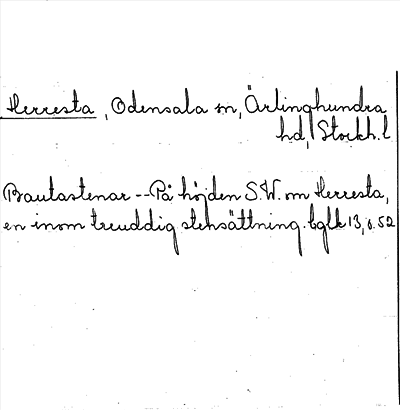 Herresta, Odensala sn, Ärlinghundra
hd, Stockh. l
Bautastenar -- På höjden S.W. om Herresta,
en inom treuddig stensättning. bglk 13, s. 52